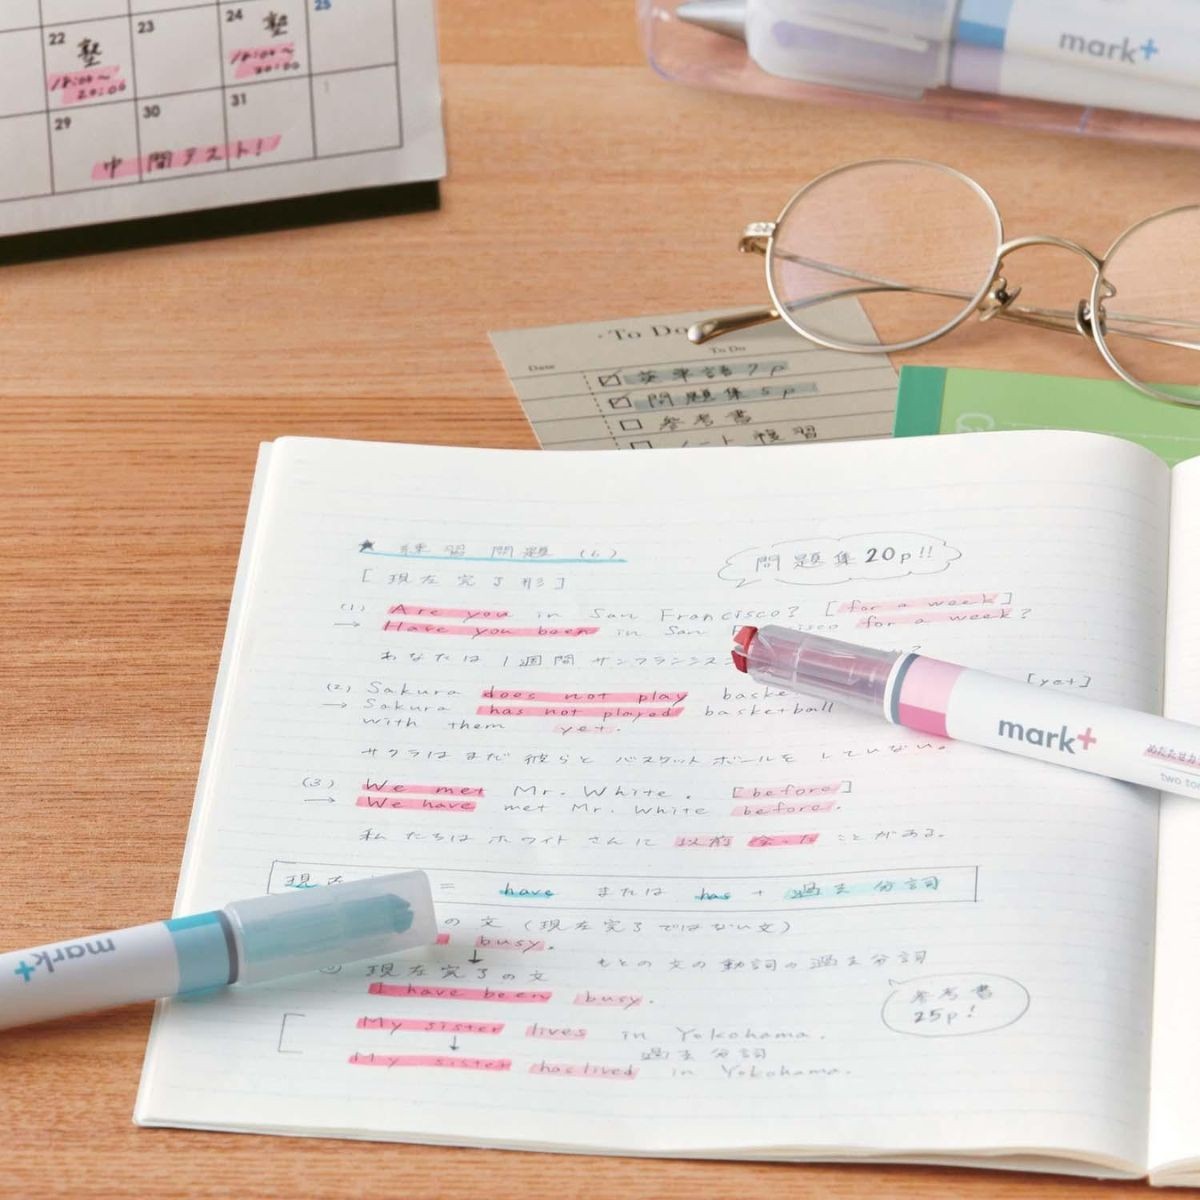 25
22 塾 23 24 塾
18:00~
20:00
18:00~
20:00
29 30 31 1
中間テスト!
mark+
To Do
To Do
Date
英単語7p
問題集5p
参考書
ノート復習
★ 練習問題 (6)
問題集20p!!
[現在完了形]
(1) Are you in San Francisco? [for a week]
→ Have you been in San isco for a week?
あなたは1週間サンフランシス
(2) Sakura does not play baske [yet]
→ Sakura has not played basketball
with them yet.
サクラはまだ彼らとバスケットボールをしていない。
(3) We met Mr. White. [before]
→ We have met Mr. White before.
私たちはホワイトさんに以前会ったことがある。
現在 = have または has + 過去分詞
の文(現在完了ではない文)
busy.
↓ もとの文の動詞の過去分詞
現在完了の文
I have been busy.
参考書
25p!
My sister lives in Yokohama.
↓ 過去分詞
My sister has lived in Yokohama.
mark+
two to
mark+